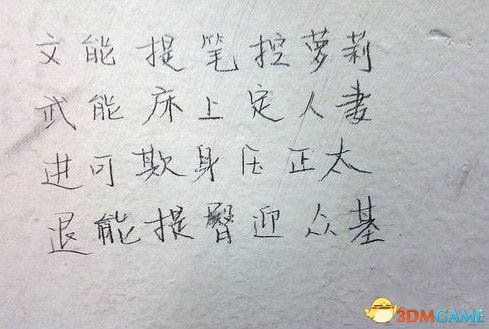 文能提笔控萝莉
武能床上定人妻
进可欺身压正太
退能提臀迎众基
3DMGAME